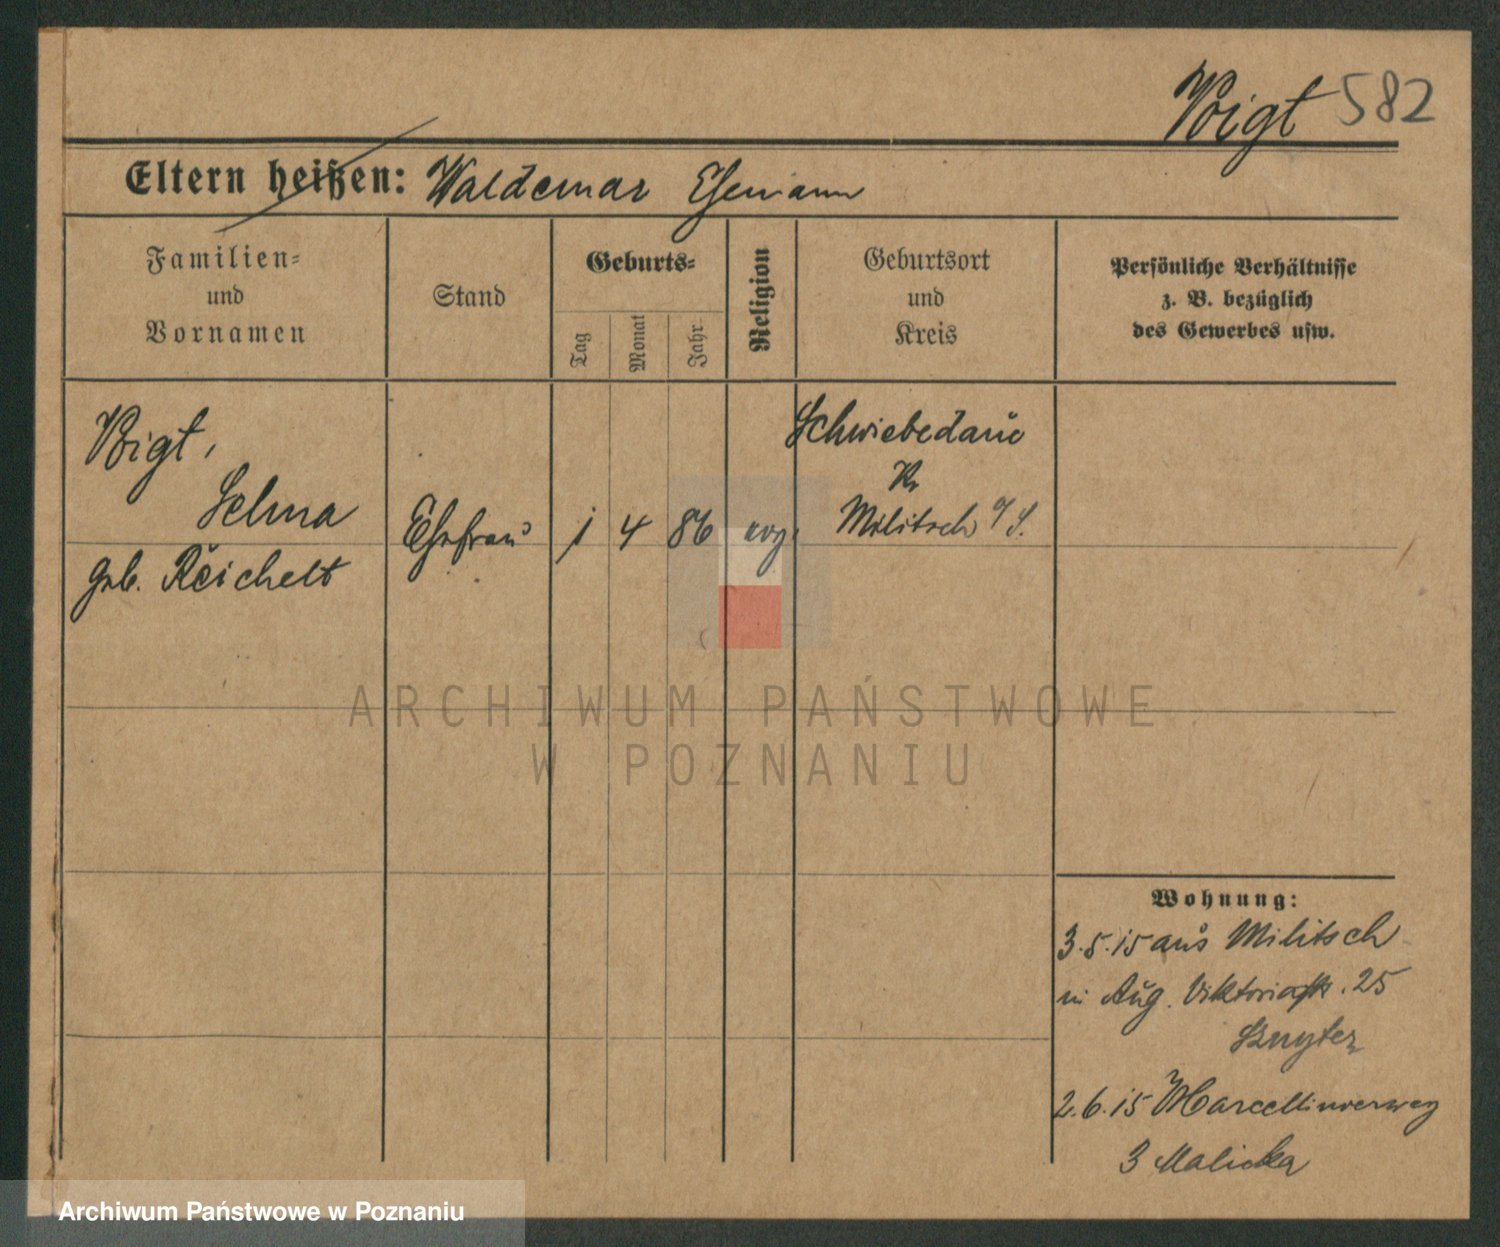 Voigt 582
Eltern heißen: Waldemar Ehemann
Familien=
und
Vornamen
Stand
Geburts=
Tag
Monat
Jahr
Religion
Geburtsort
und
Kreis
Persönliche Verhältnisse
z. B. bezüglich
des Gewerbes usw.
Voigt,
Selma
geb. Reichelt
Ehefrau
1 4 86 evg.
Schwiebedawe
Kr
Militsch
ARCHIWUM PAŃSTWOWE
W POZNANIU
Wohnung:
3.5.15 aus Militsch
in Aug. Viktoriastr. 25
2.6.15 Marcellinoerweg
3 Malicka
Archiwum Państwowe w Poznaniu